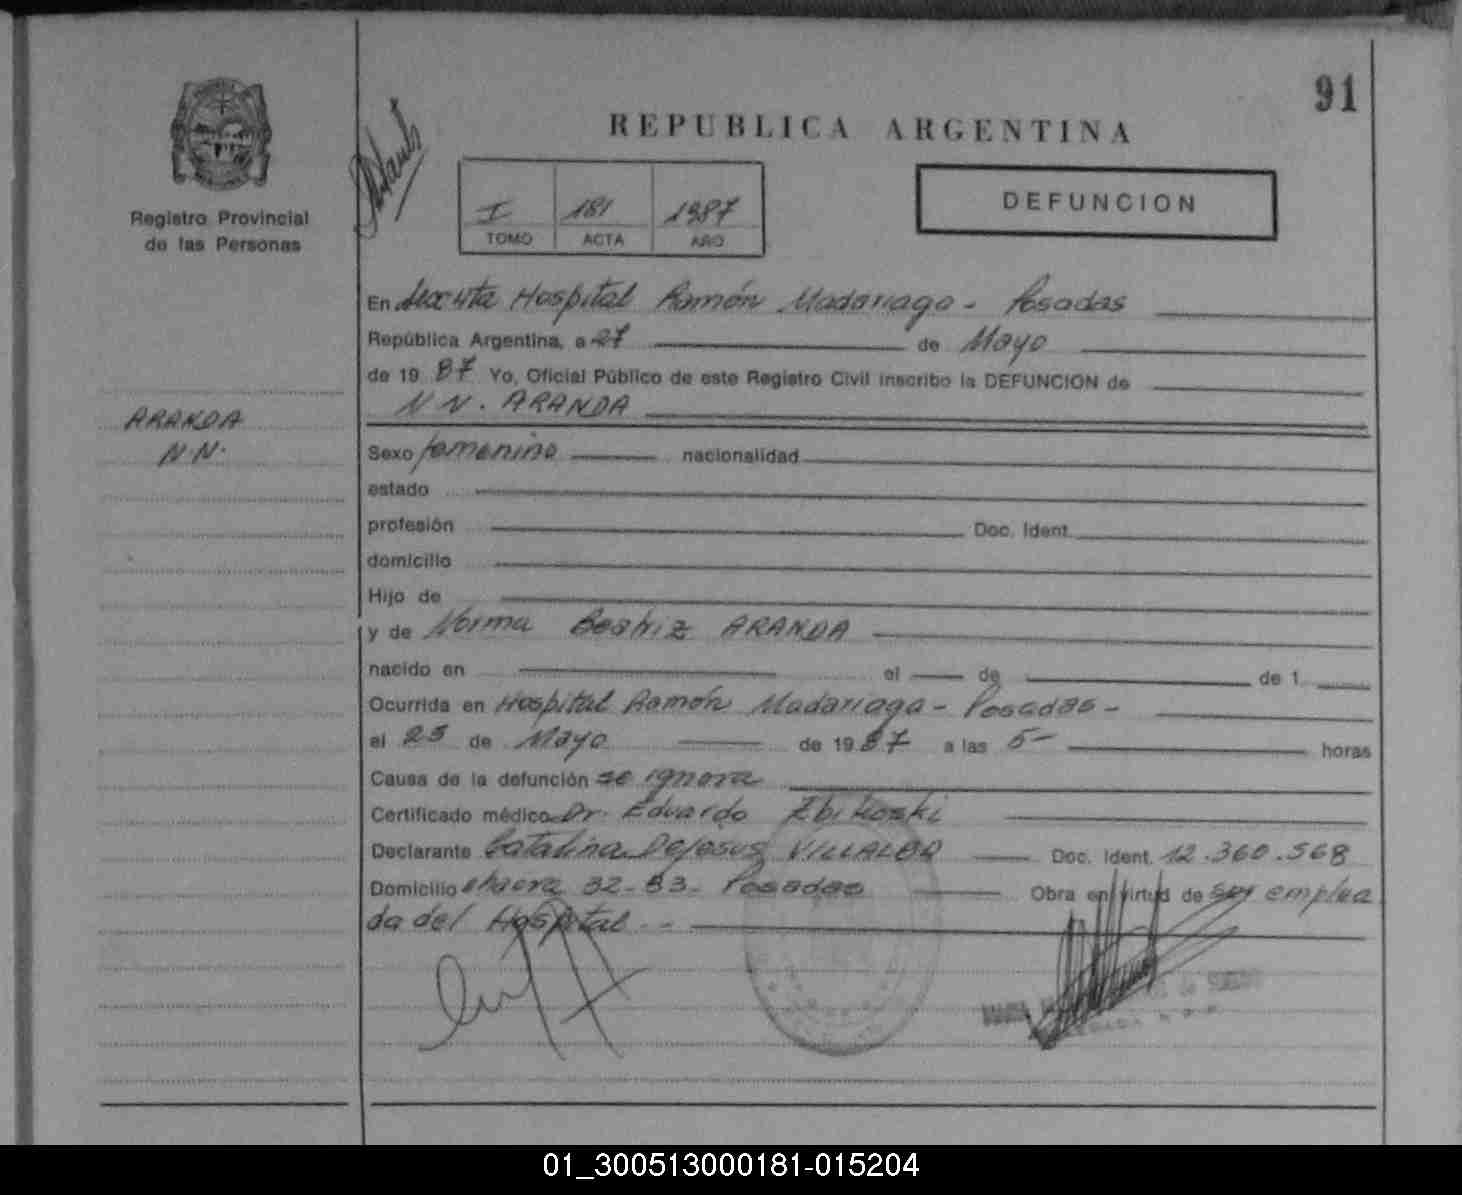 91
REPUBLICA ARGENTINA
Registro Provincial
de las Personas
I 181 1987
TOMO ACTA AÑO
DEFUNCION
En Hospital Ramón Madariaga - Posadas
República Argentina, a 27 de Mayo
de 19 87 Yo, Oficial Público de este Registro Civil inscribo la DEFUNCION de
N N. ARANDA
ARANDA
N.N.
Sexo femenino nacionalidad
estado
profesión Doc. Ident.
domicilio
Hijo de
y de Norma Beatriz ARANDA
nacido en el de de 1
Ocurrida en Hospital Ramón Madariaga - Posadas -
el 25 de Mayo de 19 87 a las 5- horas
Causa de la defunción se ignora
Certificado médico Dr. Eduardo
Declarante Catalina Dejesus VILLALBA Doc. Ident. 12.360.568
Domicilio chacra 32-33- Posadas Obra en virtud de ser emplea
da del Hospital - -
01_300513000181-015204